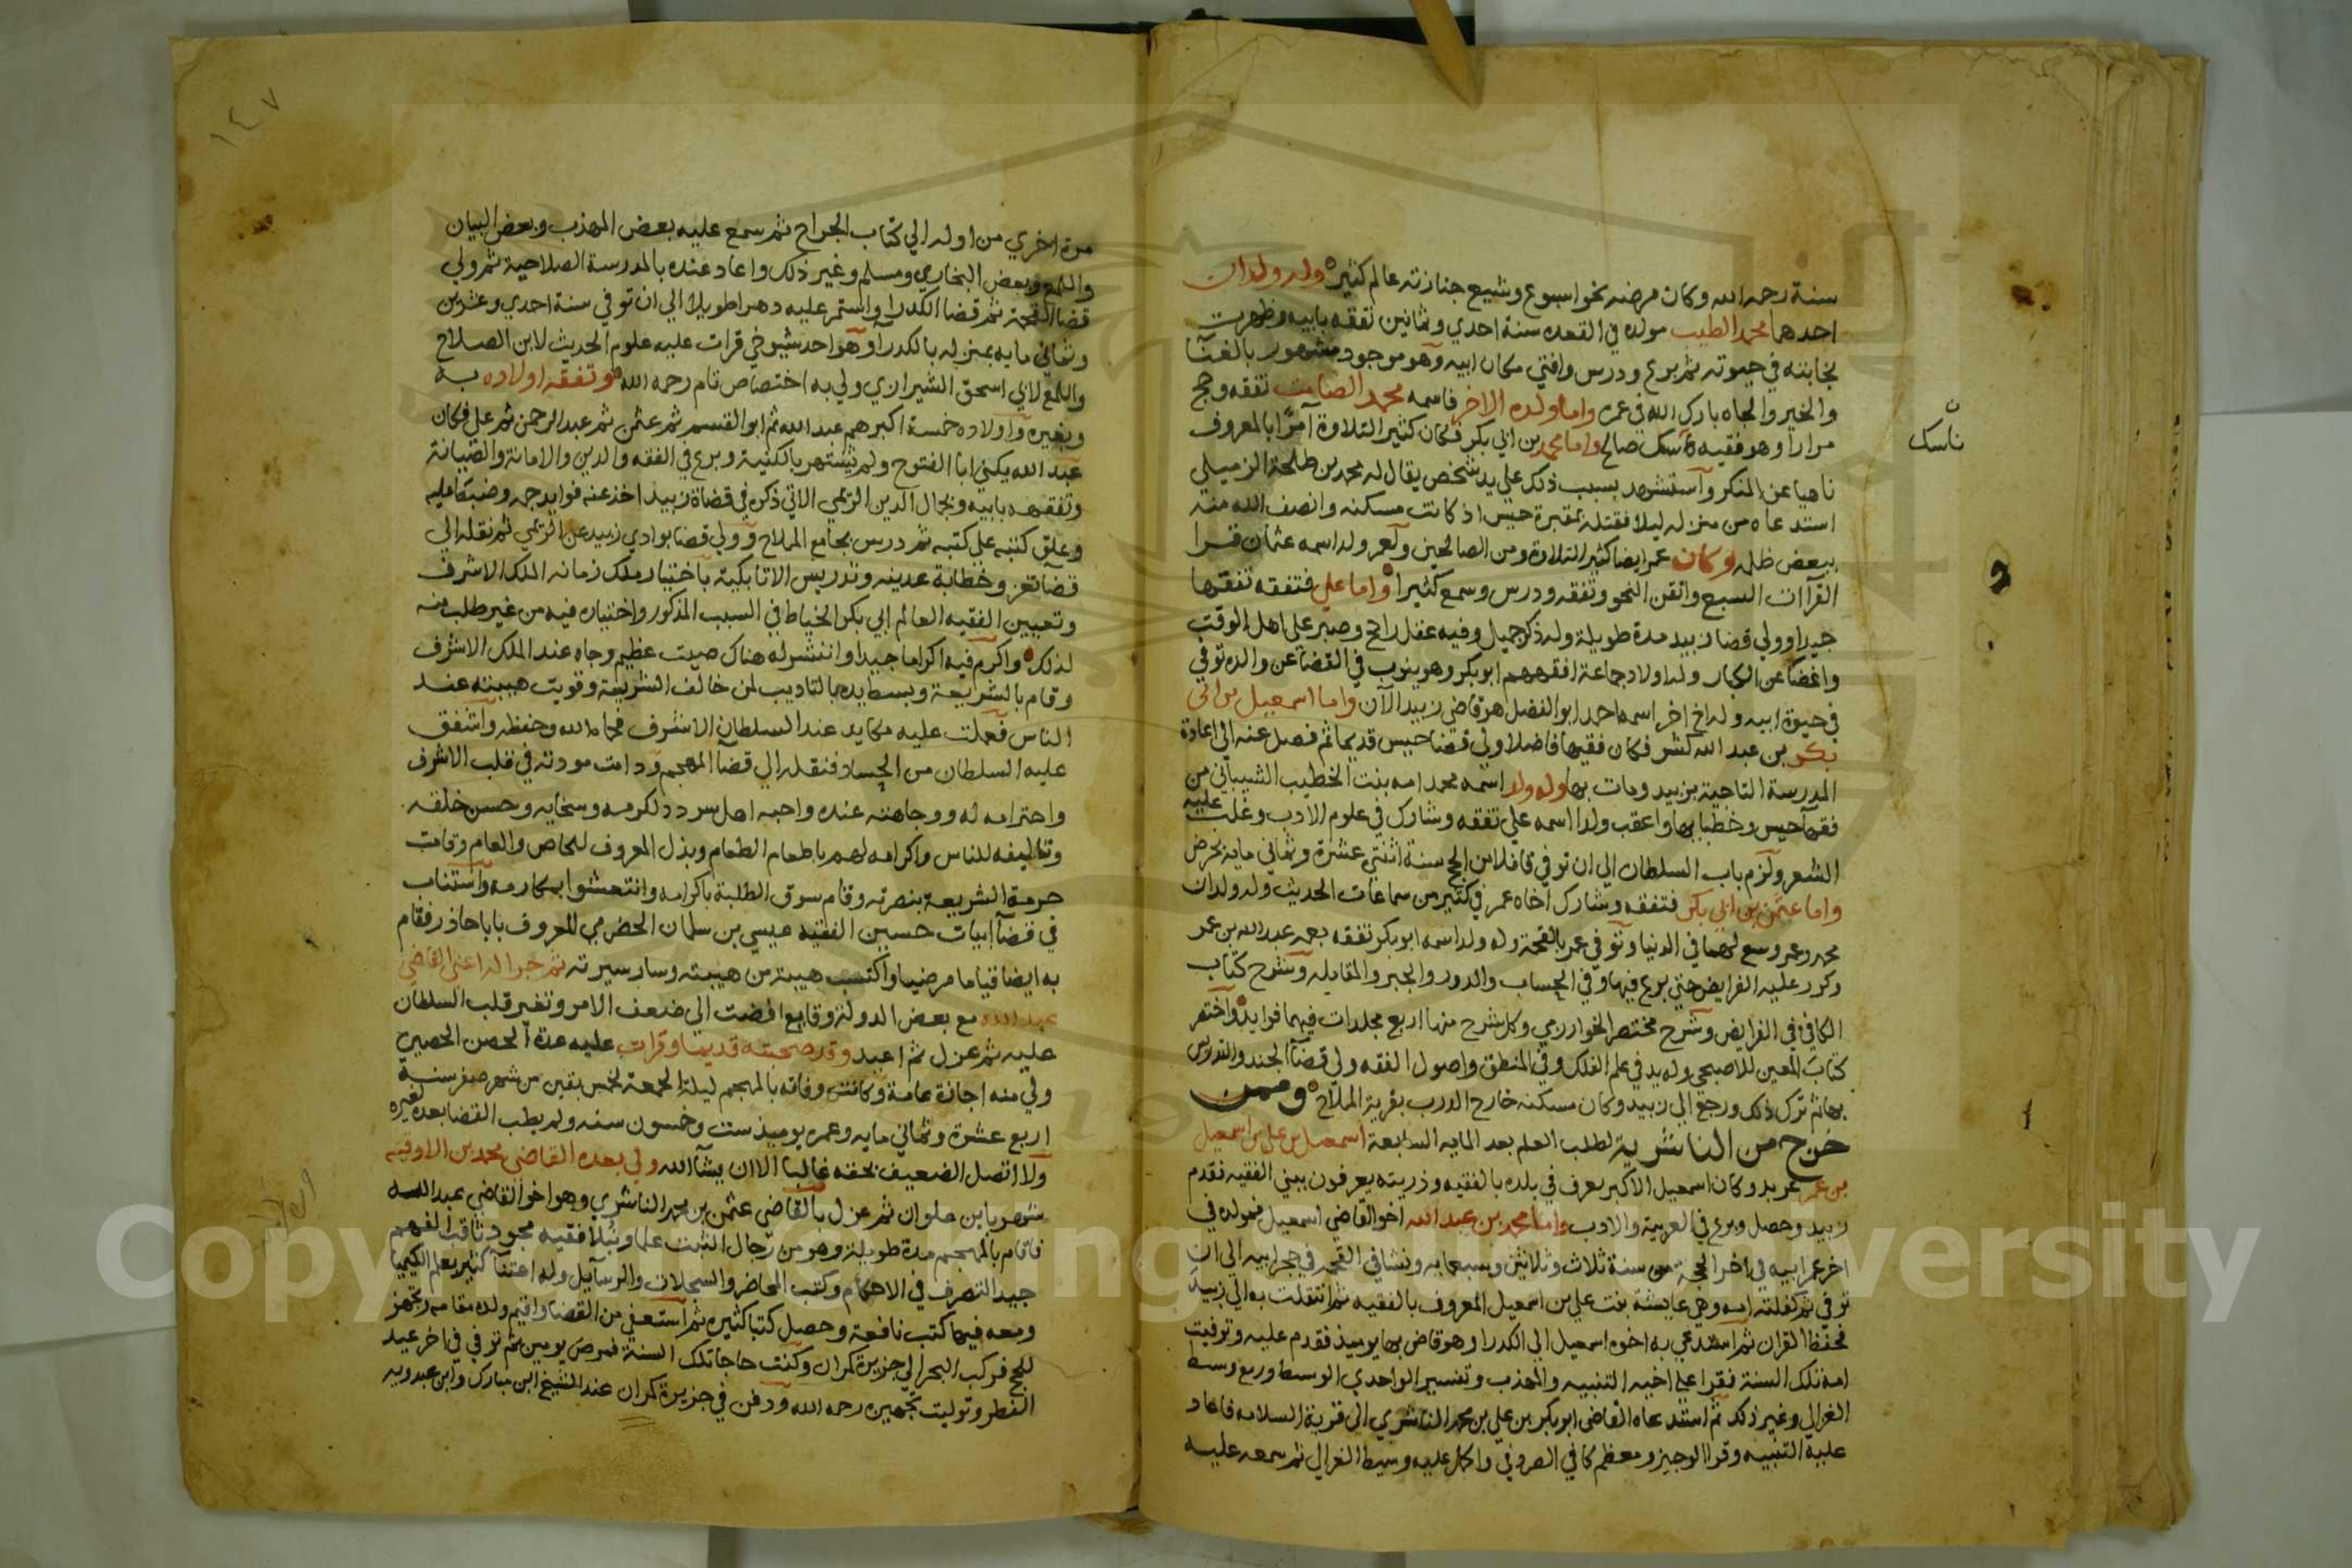 سنة رحمه الله وكان مرضه نحو اسبوع وشيع جنازته عالم كثير وله ولدان
احدهما محمد الطيب مولده في القعده سنة احدي وثمانين تفقه بابيه وظهرت
نجابته في حيوته ثم برع ودرس وافتي مكان ابيه وهو موجود مشهور بالغنا
والخير والجاه بارك الله في عمره واما ولده الاخر فاسمه محمد الصامت تفقه وحج
مرارا وهو فقيه ناسك صالح واما محمد بن ابي بكر فكان كثير التلاوة آمرًا بالمعروف
ناسك
ناهيا عن المنكر وآستشهد بسبب ذلك علي يد شخص يقال له محمد بن طلحة الزميلي
استدعاه من منزله ليلا فقتله بمقبرة حيس اذ كانت مسكنه وانصف الله منه
ببعض ظلمه وكان عمر ايضا كثير التلاوة ومن الصالحين ولعمر ولد اسمه عثمان قرا
القرآات السبع واتقن النحو وتفقه ودرس وسمع كثيرا واما علي فتفقه تفقها
جيدا وولي قضا زبيد مدة طويلة وله ذكر جميل وفيه عقل راجح وصبر علي اهل الوقت
واغضا عن الكبار وله اولاد جماعة افقههم ابو بكر وهو ينوب في القضا عن والده توفي
في حيوة ابيه وله اخ اخر اسمه احمد ابو الفضل هو قاضي زبيد الآن واما اسمعيل بن ابي
بكر بن عبد الله كشر فكان فقيها فاضلا ولي قضا حيس قديما ثم فصل عنه الي اعادة
المدرسة التاجية بزبيد ومات بها وله ولد اسمه محمد امه بنت الخطيب الشيباني من
فقها حيس وخطبا بها واعقب ولدا اسمه علي تفقه وشارك في علوم الادب وغلب عليه
الشعر ولزم باب السلطان الي ان توفي قافلا من الحج سنة اثنتي عشرة وثماني مايه بحرض
واما عثمن بن ابي بكر فتفقه وشارك اخاه عمر في كثير من سماعات الحديث وله ولدان
محمد وعمر وسع لهما في الدنيا وتوفي عمر بالقحمة وله ولد اسمه ابو بكر تفقه بعمه عبد الله بن عمر
وكرر عليه الفرايض حتي برع فيها وفي الحساب والدور والجبر والمقابله وشرح كتاب
الكافي في الفرايض وشرح مختصر الخوارزمي وكل شرح منها اربع مجلدات فيهما فوايد واختصر
كتاب المعين للاصبحي وله يد في علم الفلك وفي المنطق واصول الفقه ولي قضآ الجند والتدريس
بها ثم ترك ذلك ورجع الي زبيد وكان مسكنه خارج الدرب بقرية الملاح وممن
خرج من الناشرية لطلب العلم بعد المايه السابعة اسمعيل بن علي بن اسمعيل
بن عمر عربد وكان اسمعيل الاكبر يعرف في بلده بالفقيه وذريته يعرفون ببني الفقيه فقدم
زبيد وحصل وبرع في العربية والادب واما محمد بن عبد الله اخو القاضي اسمعيل فمولده في
اخر عمر ابيه في اخر الحجة سنة ثلاث وثلاثين وسبعمايه ونشا في القحمة في حجر ابيه الي ان
توفي ثم كفلته امه وهي عايشة بنت علي بن اسمعيل المعروف بالفقيه ثم انتقلت به الي زبيد
فحفظ القران ثم استدعي به اخوه اسمعيل الي الكدرا وهو قاض بها يوميذ فقدم عليه وتوفيت
امه تلك السنة فقرا علي اخيه التنبيه والمهذب وتفسير الواحدي الوسيط وربع وسيط
الغزالي وغير ذلك ثم استدعاه القاضي ابو بكر بن علي بن محمد الناشري الي قرية السلامه فاعاد
عليه التنبيه وقرا الوجيز ومعظم كافي الصروفي واكمل عليه وسيط الغزالي ثم سمعه عليه
١٤٧
مرة اخري من اوله الي كتاب الجراح ثم سمع عليه بعض المهذب وبعض البيان
واللمع وبعض البخاري ومسلم وغير ذلك واعاد عنده بالمدرسة الصلاحية ثم ولي
قضا القحمة ثم قضا الكدرا واستمر عليه دهرا طويلا الي ان توفي سنة احدي وعشرين
وثماني مايه بمنزله بالكدرآ وهو احد شيوخي قرات عليه علوم الحديث لابن الصلاح
واللمع لابي اسحق الشيرازي ولي به اختصاص تام رحمه الله وتفقه اولاده به
وبغيره واولاده خمسة اكبرهم عبد الله ثم ابو القسم ثم عثمن ثم عبد الرحمن ثم علي فكان
عبد الله يكني ابا الفتوح ولم يشتهر بالكنية وبرع في الفقه والدين والامانة والصيانة
وتفقهه بابيه وبجمال الدين الريمي الاتي ذكره في قضاة زبيد اخذ عنه فوايد جمه وضبط عليه
وعلق كتبه علي كتبه ثم درس بجامع الملاح وولي قضا بوادي زبيد عن الريمي ثم نقله الي
قضا تعز وخطابة عدينه وتدريس الاتابكية باختيار ملك زمانه الملك الاشرف
وتعيين الفقيه العالم ابي بكر الخياط في السبب المذكور واختياره فيه من غير طلب منه
لذلك واكرم فيه اكراما جيدا وانتشر له هناك صيت عظيم وجاه عند الملك الاشرف
وقام بالشريعة وبسط يده بالتاديب لمن خالف الشريعة وقويت هيبته عند
الناس فعملت عليه مكايد عند السلطان الاشرف فحماه الله وحفظه واشفق
عليه السلطان من الحساد فنقله الي قضآ المهجم ودامت مودته في قلب الاشرف
واحترامه له ووجاهته عنده واحبه اهل سردد لكرمه وسخايه وحسن خلقه
وتاليفه للناس واكرامه لهم باطعام الطعام وبذل المعروف للخاص والعام وقامت
حرمة الشريعة بنصرته وقام سوق الطلبة باكرامه وانتعشوا بمكارمه واستناب
في قضآ ابيات حسين الفقيه عيسي بن سلمان الحضرمي المعروف بابا حاذر فقام
به ايضا قياما مرضيا واكتسب هيبة من هيبته وسار سيرته ثم جرا له اعني القاضي
عبد الله مع بعض الدولة وقايع افضت الي ضعف الامر وتغير قلب السلطان
عليه ثم عزل ثم اعيد وقد صحبته قديما وقرات عليه عدة الحصن الحصين
ولي منه اجازة عامة وكانت وفاته بالمهجم ليلة الجمعة لخمس بقين من شهر صفر سنة
اربع عشرة وثماني مايه وعمره يوميذ ست وخمسون سنه ولم يطب القضا بعده لغيره
ولا اتصل الضعيف بحقه غالبا الا ان يشآ الله ولي بعده القاضي محمد بن
شهر بابن علوان ثم عزل بالقاضي عثمن بن محمد الناشري وهو اخو القاضي عبد الله
فاقام بالمهجم مدة طويلة وهو من رجال الثبت علما ونبلا فقيه مجود ثاقب الفهم
جيد التصرف في الاحكام وكتب المحاضر والسجلات والرسآيل وله اعتنآ كثير بعلم الكيميا
ومعه فيها كتب نافعة وحصل كتبا كثيره ثم استعفي من القضا واقيم ولده مقامه وتجهز
للحج فركب البحر الي جزيرة كمران وكنت حاجا تلك السنة فمرض يومين ثم توفي في اخر عيد
الفطر وتوليت تجهيزه رحمه الله ودفن في جزيرة كمران عند الشيخ ابن مبارك وابن عبدويه